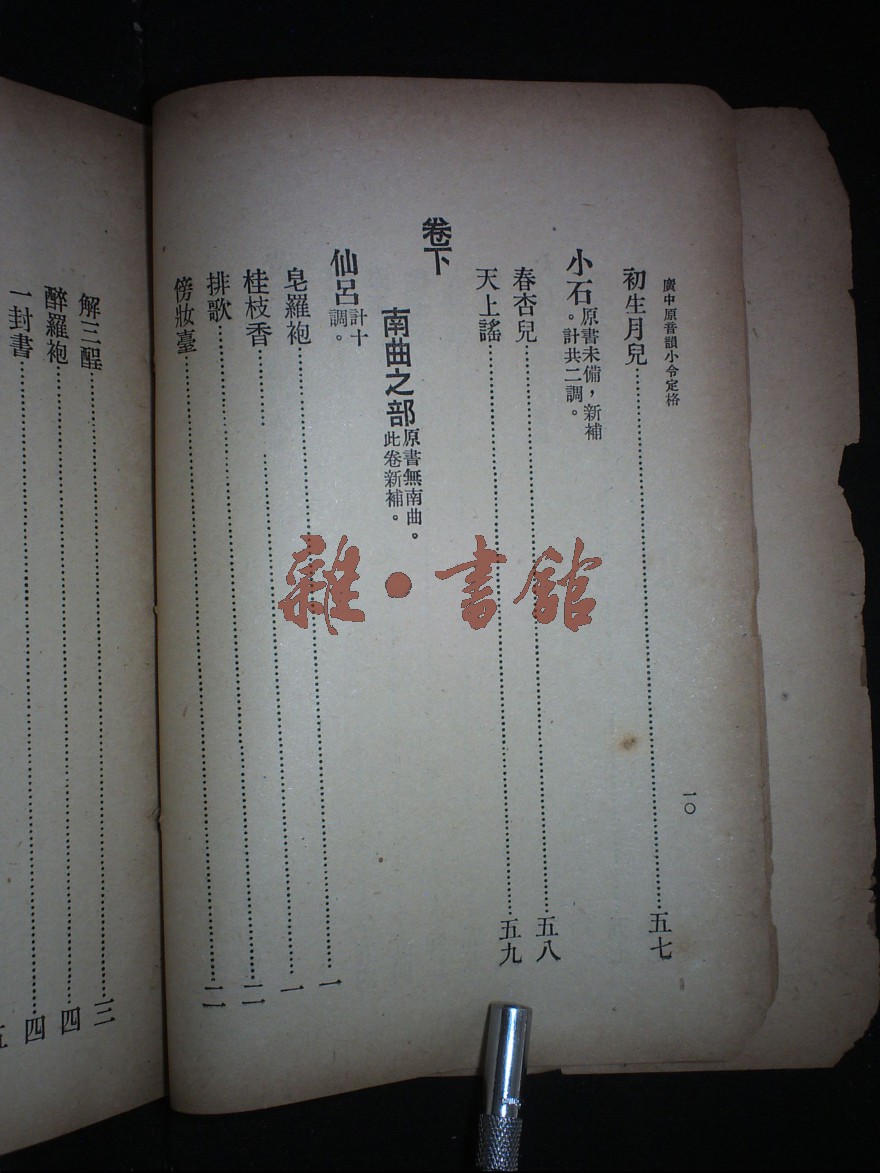 廣中原音韻小令定格
一〇
初生月兒……五七
小石原書未備，新補。計共二調。
春杏兒……五八
天上謠……五九
卷下
南曲之部原書無南曲。此卷新補。
仙呂計十調。……一
皂羅袍……一
桂枝香……二
排歌……二
傍妝臺
解三酲……三
醉羅袍……四
一封書……四
五
雜·書館